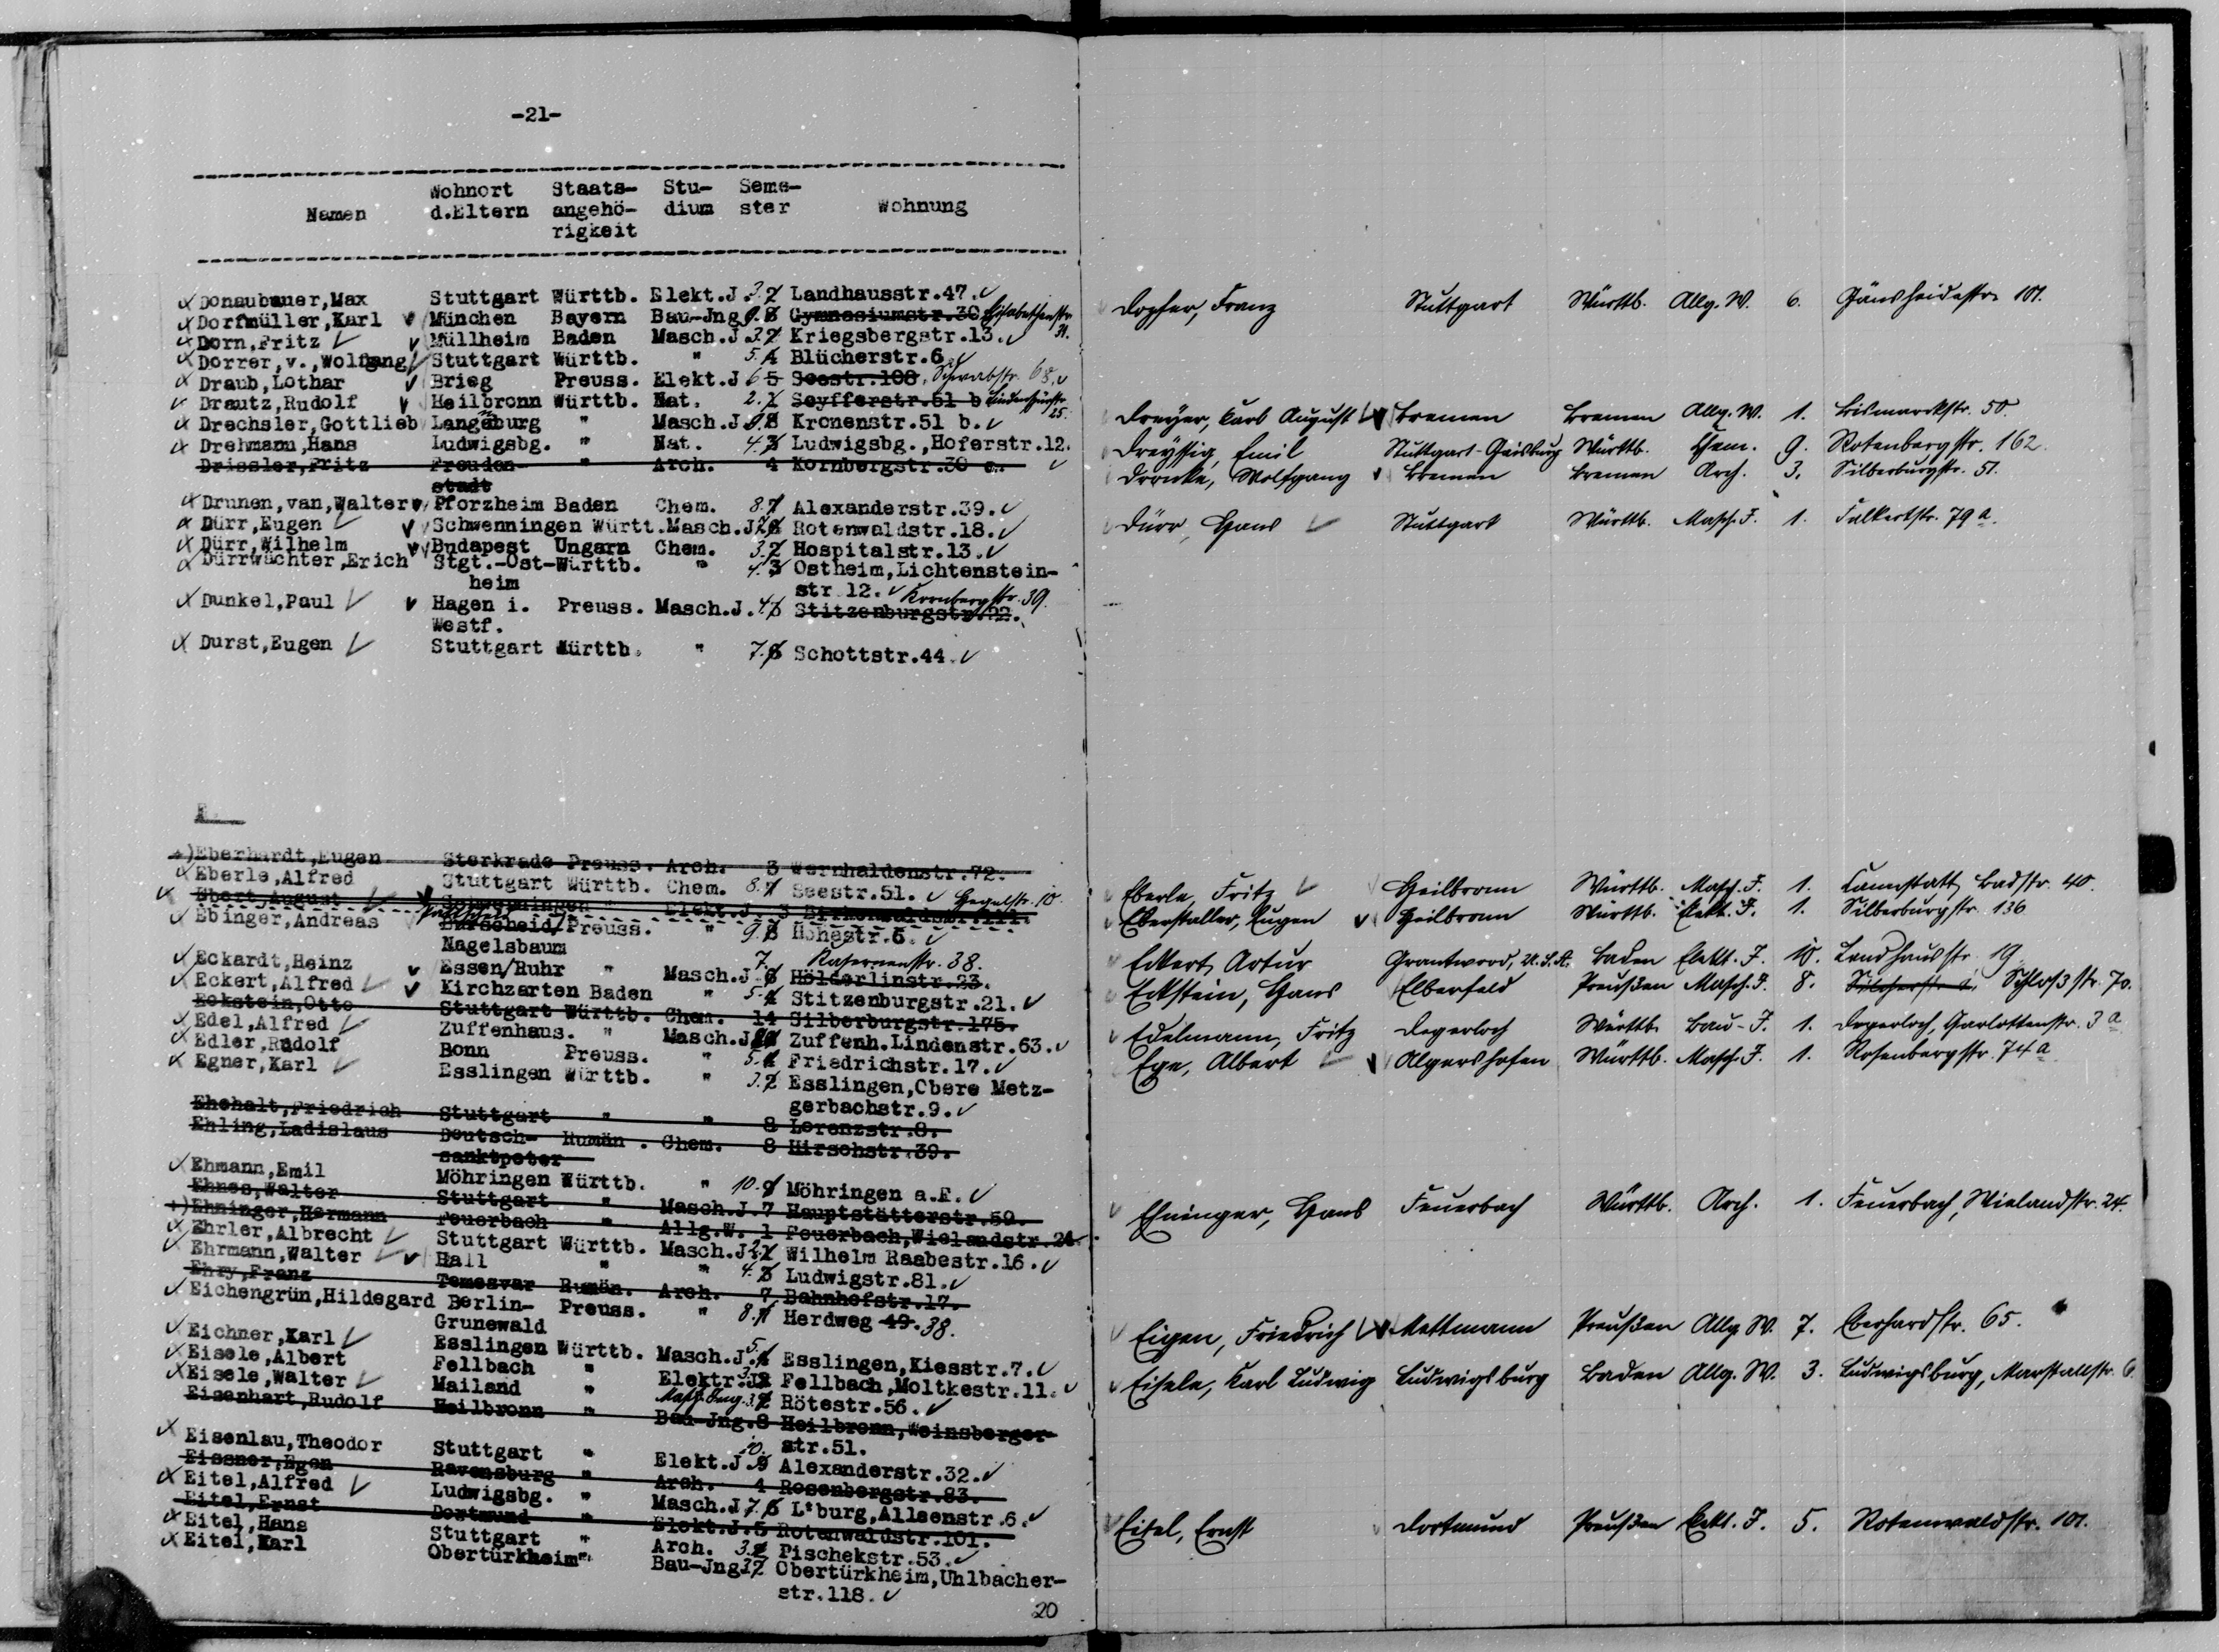 -21-
Namen Wohnort d.Eltern Staats-angehö-rigkeit Stu-dium Seme-ster Wohnung
Donaubauer,Max Stuttgart Württb. Elekt.J. 3. 2 Landhausstr.47.
Dorfmüller,Karl München Bayern Bau-Jng 9. 8 Gymnasiumstr.30 Elisabethenstr. 31.
Dorn,Fritz Müllheim Baden Masch.J 3. 2 Kriegsbergstr.13.
Dorrer,v.,Wolfgang Stuttgart Württb. " 5. 4 Blücherstr.6.
Draub,Lothar Brieg Preuss. Elekt.J 6 5 Seestr.108. Schwabstr. 68.
Drautz,Rudolf Heilbronn Württb. Nat. 2. 1 Seyfferstr.51 b Lindenspürstr. 25.
Drechsler,Gottlieb Langenburg " Masch.J. 9. 8 Kronenstr.51 b.
Drehmann,Hans Ludwigsbg. " Nat. 4. 3 Ludwigsbg.,Hoferstr.12.
Drissler,Fritz Freuden- " Arch. 4 Kornbergstr.30
stadt
Drunen,van,Walter Pforzheim Baden Chem. 8. 7 Alexanderstr.39.
Dürr,Eugen Schwenningen Württ.Masch.J 7. 6 Rotenwaldstr.18.
Dürr,Wilhelm Budapest Ungarn Chem. 3. 2 Hospitalstr.13.
Dürrwächter,Erich Stgt.-Ost-Württb. " 4. 3 Ostheim,Lichtenstein-
heim str.12.
Dunkel,Paul Hagen i. Preuss. Masch.J. 4. Stitzenburgstr.22. Kornbergstr. 39.
Westf.
Durst,Eugen Stuttgart Württb. " 7. 6 Schottstr.44.
E.
+)Eberhardt,Eugen Sterkrade Preuss. Arch. 3 Wernhaldenstr.72.
Eberle,Alfred Stuttgart Württb. Chem. 8. 7 Seestr.51. Hegelstr. 10.
Ebert,August Schwenningen " Elekt.J. 3
Ebinger,Andreas Burscheid/Preuss. " 9. 8 Hohestr.6.
Nagelsbaum
Eckardt,Heinz Essen/Ruhr " Masch.J. 7. 6 Hölderlinstr.23. Kasernenstr. 38.
Eckert,Alfred Kirchzarten Baden " 5. 4 Stitzenburgstr.21.
Eckstein,Otto Stuttgart Württb. Chem. 14 Silberburgstr.175.
Edel,Alfred Zuffenhaus. " Masch.J. Zuffenh.Lindenstr.63.
Edler,Rudolf Bonn Preuss. " 5. 4 Friedrichstr.17.
Egner,Karl Esslingen Württb. " 3. 2 Esslingen,Obere Metz-
gerbachstr.9.
Ehehalt,Friedrich Stuttgart " " 8 Lorenzstr.8.
Ehling,Ladislaus Deutsch- Rumän. Chem. 8 Hirschstr.39.
sanktpeter
Ehmann,Emil Möhringen Württb. " 10. 9 Möhringen a.F.
Ehnes,Walter Stuttgart " Masch.J. 7 Hauptstätterstr.59.
+)Ehninger,Hermann Feuerbach " Allg.W. 1 Feuerbach,Wielandstr.24.
Ehrler,Albrecht Stuttgart Württb. Masch.J 2. 1 Wilhelm Raabestr.16.
Ehrmann,Walter Hall " " 4. 3 Ludwigstr.81.
Ehry,Franz Temesvar Rumän. Arch. 7 Bahnhofstr.17.
Eichengrün,Hildegard Berlin- Preuss. " 8. 7 Herdweg 49. 38.
Grunewald
Eichner,Karl Esslingen Württb. Masch.J. 5. 4 Esslingen,Kiesstr.7.
Eisele,Albert Fellbach " Elektr.J. Fellbach,Moltkestr.11.
Eisele,Walter Mailand " Masch.Ing. 3. 2 Rötestr.56.
Eisenhart,Rudolf Heilbronn " Bau-Jng. 8 Heilbronn,Weinsberger-
str.51.
Eisenlau,Theodor Stuttgart " Elekt.J. 10. 9 Alexanderstr.32.
Eissner,Egon Ravensburg " Arch. 4 Rosenbergstr.83.
Eitel,Alfred Ludwigsbg. " Masch.J 7. 6 L'burg,Alleenstr.6.
Eitel,Ernst Dortmund " Elekt.J. 5 Rotenwaldstr.101.
Eitel,Hans Stuttgart " Arch. 3. 2 Pischekstr.53.
Eitel,Karl Obertürkheim " Bau-Jng 3. 2 Obertürkheim,Uhlbacher-
str.118.
20
Franz Stuttgart Württb. Allg. W. 6. Gänsheidestr. 101.
Dreyer, Karl August Bremen Bremen Allg. W. 1. Bismarckstr. 50.
Dreyssig, Emil Stuttgart-Gaisburg Württb. Chem. 9. Rotenbergstr. 162.
Dronke, Wolfgang Bremen Bremen Arch. 3. Silberburgstr. 51.
Dürr, Hans Stuttgart Württb. Masch. I. 1. Falkertstr. 79 a.
Eberle, Fritz Heilbronn Württb. Masch. I. 1. Cannstatt, Badstr. 40.
Eberstaller, Eugen Heilbronn Württb. Elekt. I. 1. Silberburgstr. 136
Eckert, Artur Grantwood, U.S.A. Baden Elekt. I. 10. Landhausstr. 19
Eckstein, Hans Elberfeld Preußen Masch. I. 8. Schloßstr. 70.
Edelmann, Fritz Degerloch Württb. Bau-I. 1. Degerloch, Charlottenstr. 3 a
Ege, Albert Algershofen Württb. Masch. I. 1. Rosenbergstr. 74 a
Ehninger, Hans Feuerbach Württb. Arch. 1. Feuerbach, Wielandstr. 24.
Eigen, Friedrich Mettmann Preußen Allg. W. 7. Eberhardstr. 65.
Eisele, Karl Ludwig Ludwigsburg Baden Allg. W. 3. Ludwigsburg, Marstallstr. 6.
Eitel, Ernst Dortmund Preußen Elekt. I. 5. Rotenwaldstr. 101.